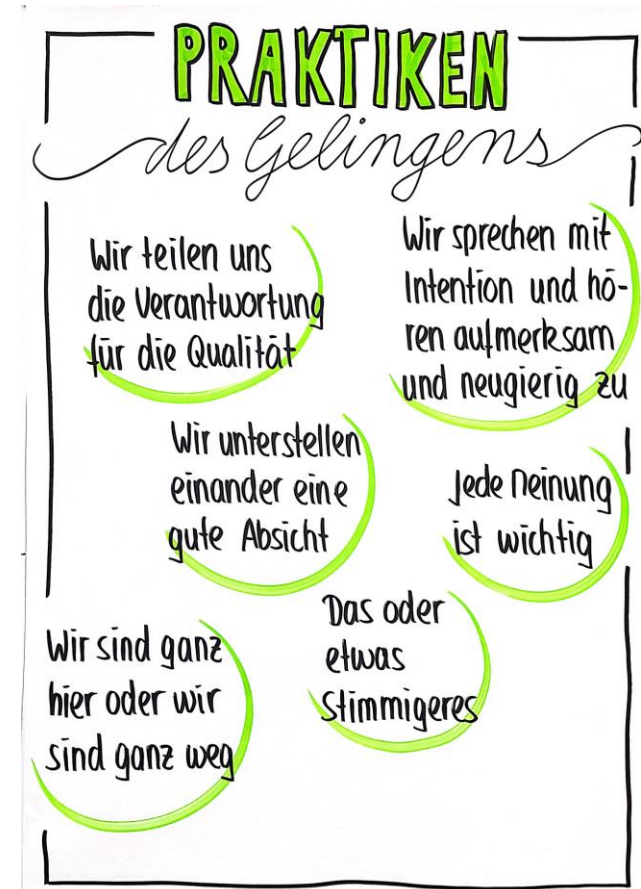 PRAKTIKEN
des Gelingens
Wir teilen uns
die Verantwortung
für die Qualität
Wir sprechen mit
Intention und hö-
ren aufmerksam
und neugierig zu
Wir unterstellen
einander eine
gute Absicht
Jede Meinung
ist wichtig
Das oder
etwas
Stimmigeres
Wir sind ganz
hier oder wir
sind ganz weg